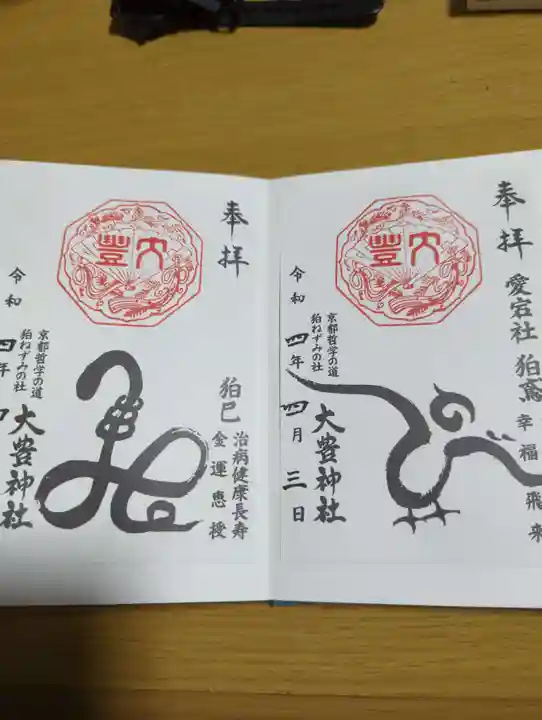 奉拝
愛宕社 狛鳶
幸福飛来
大豊
令和四年四月三日
京都哲学の道
狛ねずみの社
大豊神社
奉拝
狛巳
治病健康長寿
金運恵授
大豊
令和四年四
京都哲学の道
狛ねずみの社
大豊神社